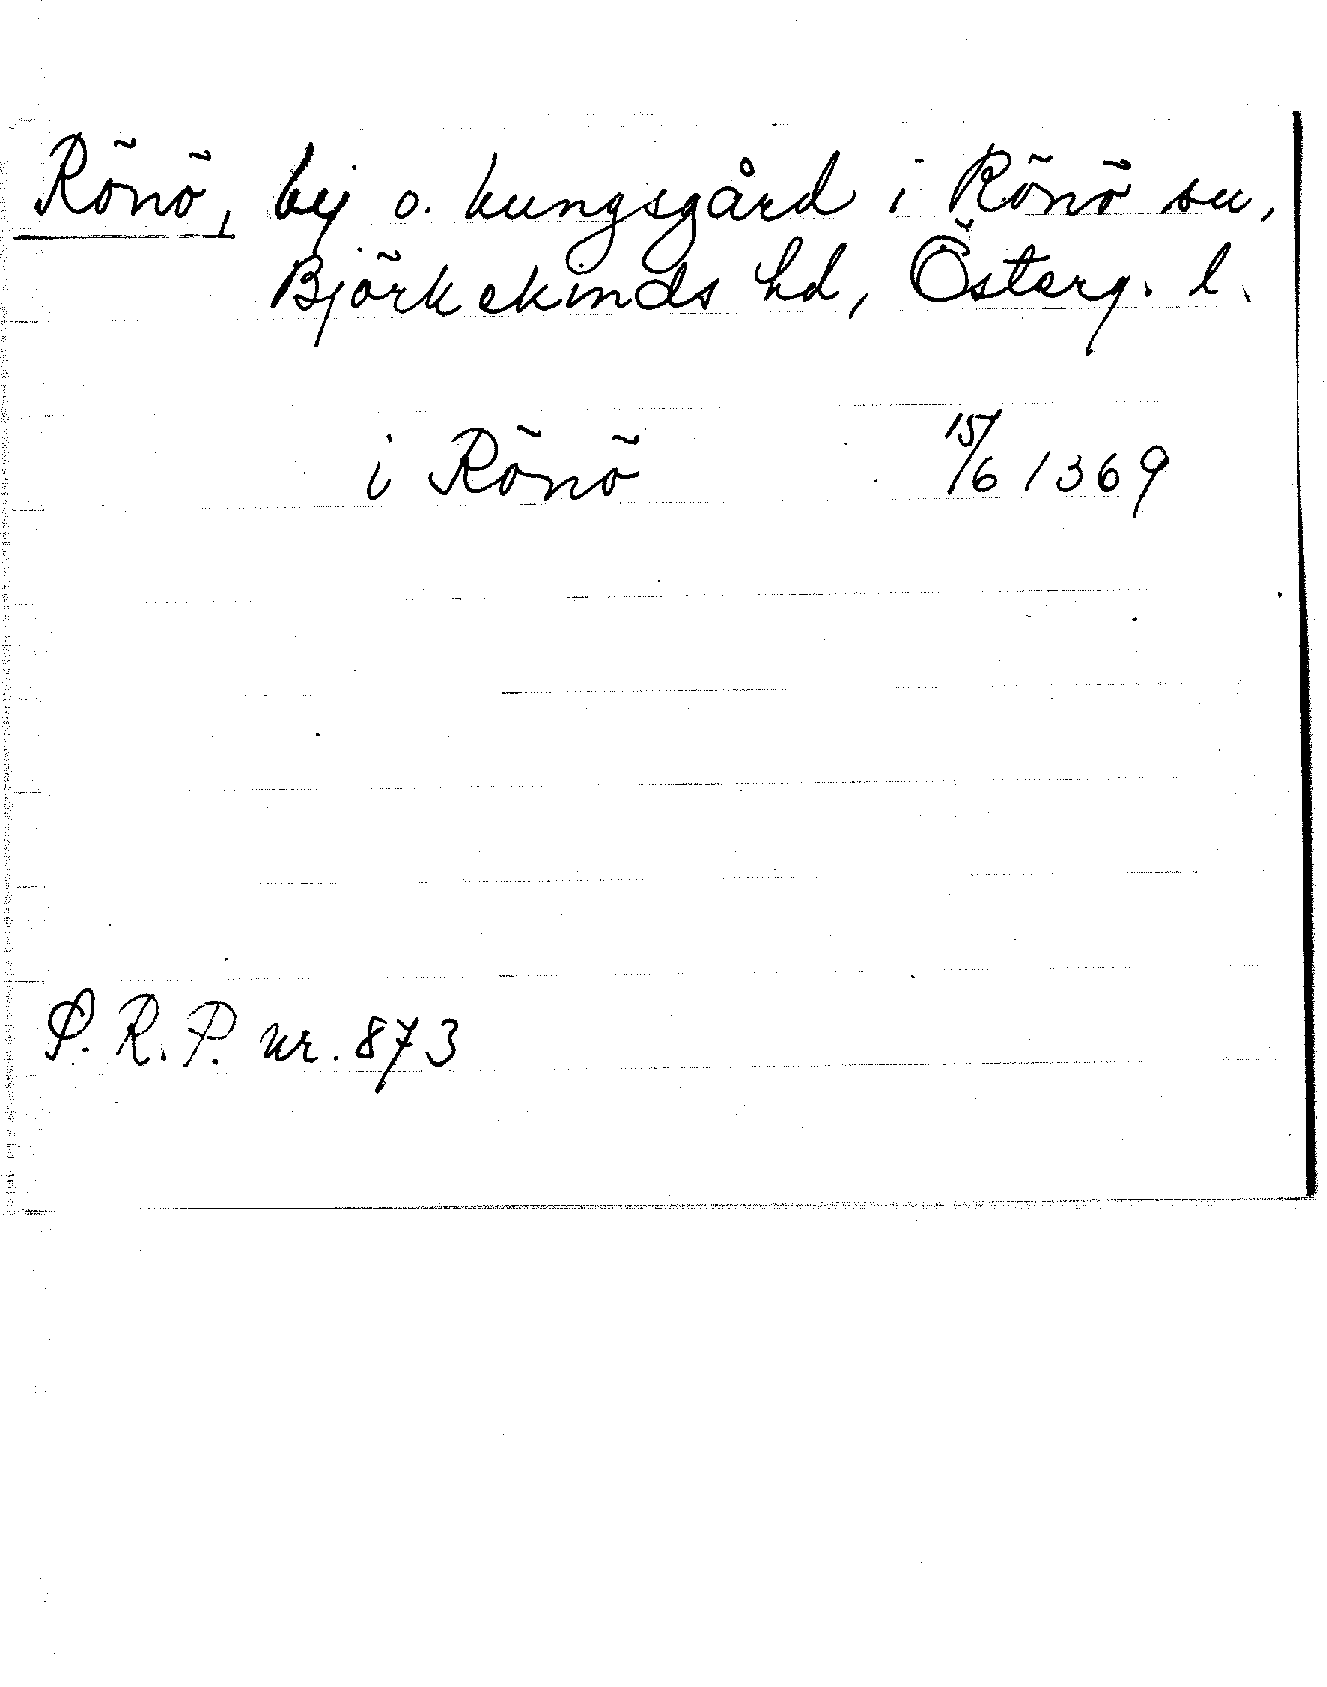 Rönö, by o. kungsgård i Rönö sn,
Björkekinds hd, Österg. l.
i Rönö 15/6 1369
S. R. P. nr. 873